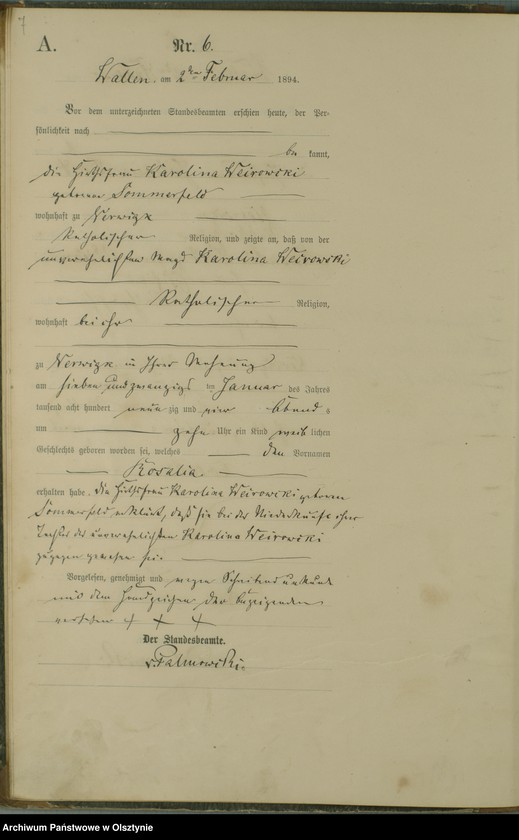 7
A.
Nr. 6.
Wallen am 2ten Februar 1894.
Vor dem unterzeichneten Standesbeamten erschien heute, der Per-
sönlichkeit nach
be kannt,
die Hirthsfrau Karolina Weirowski
geborene Sommerfeld
wohnhaft zu Nerwigk
Katholischer Religion, und zeigte an, daß von der
unverehelichten Magd Karolina Weirowski
Katholischer Religion,
wohnhaft bei ihr
zu Nerwigk in Ihrer Wohnung
am sieben und zwanzigs ten Januar des Jahres
tausend acht hundert neun zig und vier Abend s
um zehn Uhr ein Kind weib lichen
Geschlechts geboren worden sei, welches den Vornamen
Rosalia
erhalten habe. Die Hirthsfrau Karolina Weirowski geborene
Sommerfeld erklärt, daß sie bei der Niederkunft ihrer
Tochter der unverehelichten Karolina Weirowski
zugegen gewesen sei.
Vorgelesen, genehmigt und wegen Schreibensunkunde
mit dem Handzeichen der Anzeigenden
versehen + + +
Der Standesbeamte.
v. Palmowski.
Archiwum Państwowe w Olsztynie